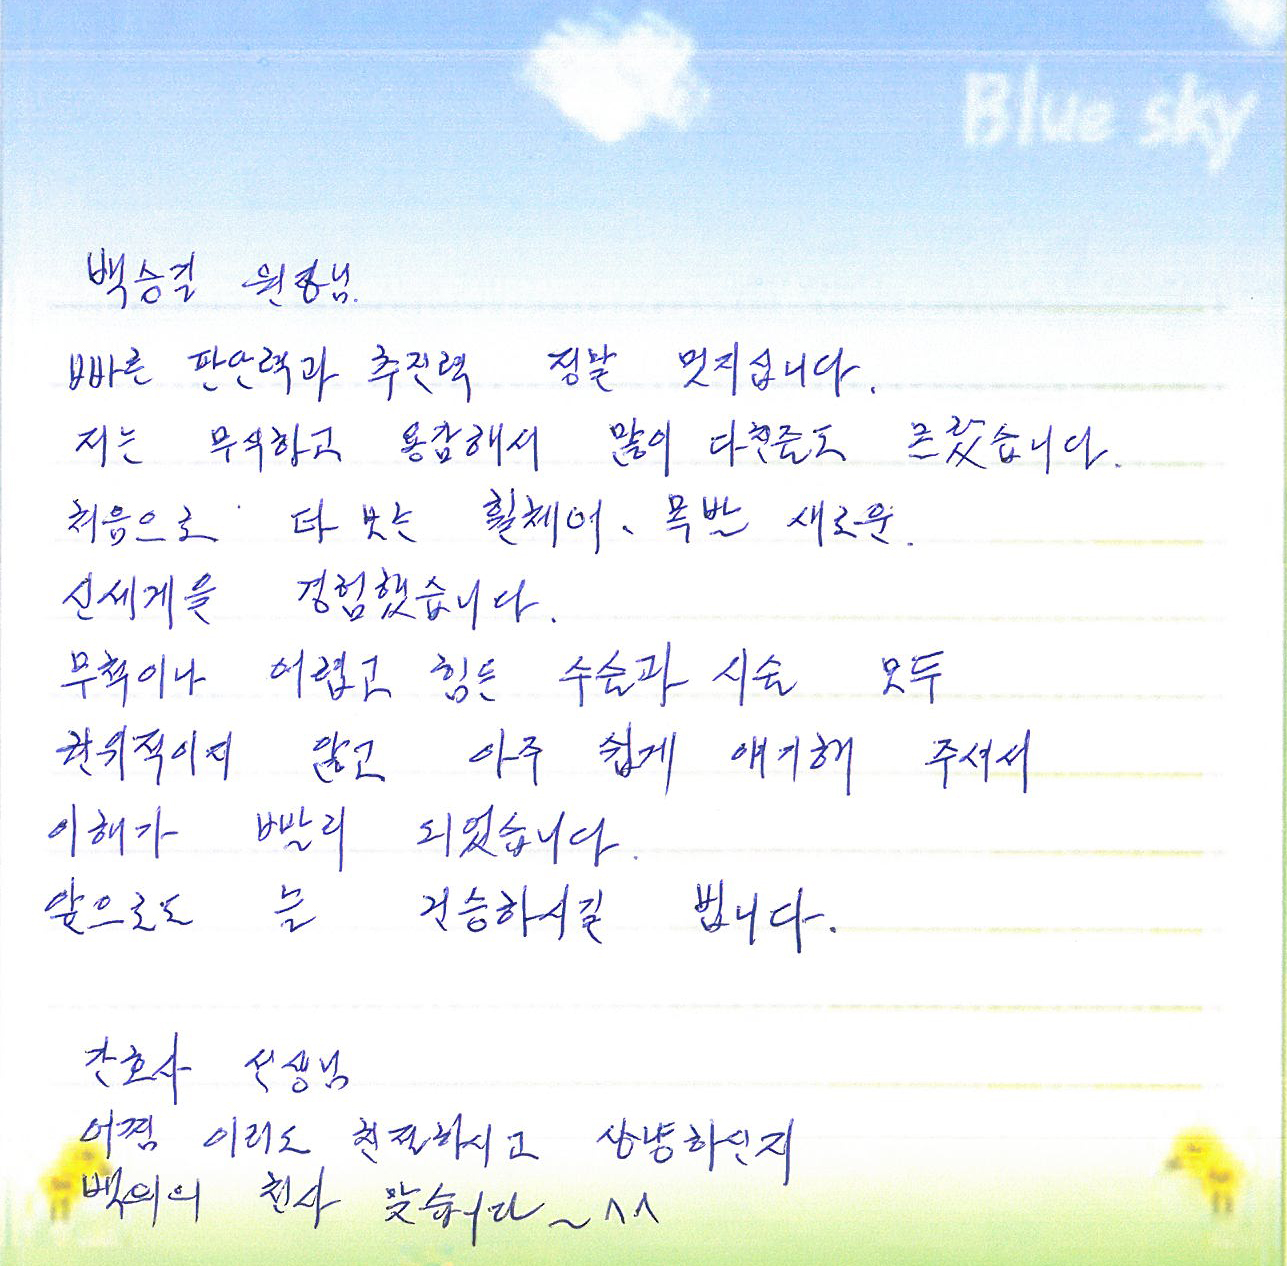 Blue sky
백승길 원장님.
빠른 판단력과 추진력 정말 멋지십니다.
저는 무식하고 용감해서 많이 다친줄도 모랐습니다.
처음으로 타 보는 휠체어、목발 새로운.
신세계을 경험했습니다.
무척이나 어렵고 힘든 수술과 시술 모두
권위적이지 않고 아주 쉽게 얘기해 주셔서
이해가 빨리 되었습니다.
앞으로도 늘 건승하시길 빕니다.
간호사 선생님
어쩜 이리도 친절하시고 상냥하신지
백의의 천사 맞습니다~^^